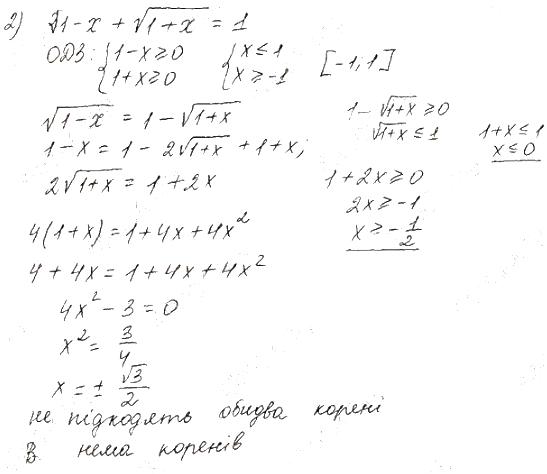 2) √1-x + √1+x = 1
ОДЗ: { 1-x ≥ 0 { x ≤ 1 [-1; 1]
{ 1+x ≥ 0 { x ≥ -1
√1-x = 1 - √1+x 1 - √1+x ≥ 0
√1+x ≤ 1 1+x ≤ 1
1-x = 1 - 2√1+x + 1+x; x ≤ 0
2√1+x = 1+2x 1+2x ≥ 0
2x ≥ -1
4(1+x) = 1+4x+4x² x ≥ -1/2
4+4x = 1+4x+4x²
4x² - 3 = 0
x² = 3/4
x = ± √3/2
не підходять обидва корені
В нема коренів